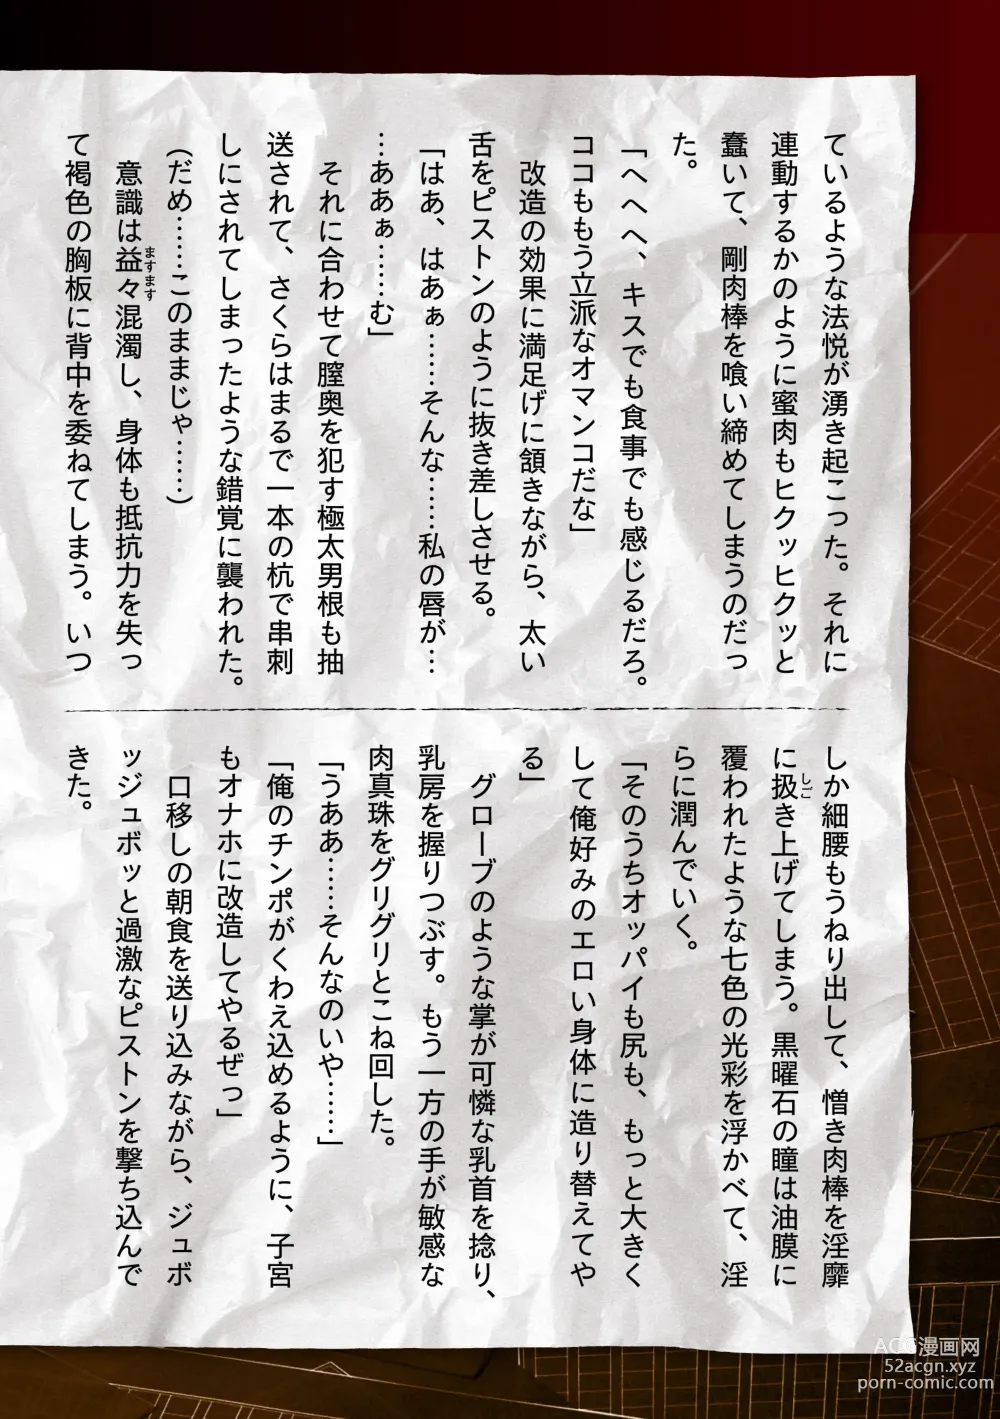 ているような法悦が湧き起こった。それに
連動するかのように蜜肉もヒクッヒクッと
蠢いて、剛肉棒を喰い締めてしまうのだっ
た。
「へへへ、キスでも食事でも感じるだろ。
ココももう立派なオマンコだな」
　改造の効果に満足げに頷きながら、太い
舌をピストンのように抜き差しさせる。
「はあ、はあぁ……そんな……私の唇が…
…ああぁ……む」
　それに合わせて膣奥を犯す極太男根も抽
送されて、さくらはまるで一本の杭で串刺
しにされてしまったような錯覚に襲われた。
（だめ……このままじゃ……）
　意識は益々ますます混濁し、身体も抵抗力を失っ
て褐色の胸板に背中を委ねてしまう。いつ
しか細腰もうねり出して、憎き肉棒を淫靡
に扱しごき上げてしまう。黒曜石の瞳は油膜に
覆われたような七色の光彩を浮かべて、淫
らに潤んでいく。
「そのうちオッパイも尻も、もっと大きく
して俺好みのエロい身体に造り替えてや
る」
　グローブのような掌が可憐な乳首を捻り、
乳房を握りつぶす。もう一方の手が敏感な
肉真珠をグリグリとこね回した。
「うああ……そんなのいや……」
「俺のチンポがくわえ込めるように、子宮
もオナホに改造してやるぜっ」
　口移しの朝食を送り込みながら、ジュボ
ッジュボッと過激なピストンを撃ち込んで
きた。
ACG漫画网
52acgn.xyz
porn-comic.com